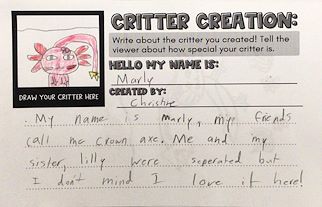 CRITTER CREATION:
Write about the critter you created! Tell the
viewer about how special your critter is.
HELLO MY NAME IS:
Marly
CREATED BY:
Christine
DRAW YOUR CRITTER HERE
My name is marly, my friends
call me crown axe. Me and my
sister, lilly were seperated but
I don't mind I love it here!